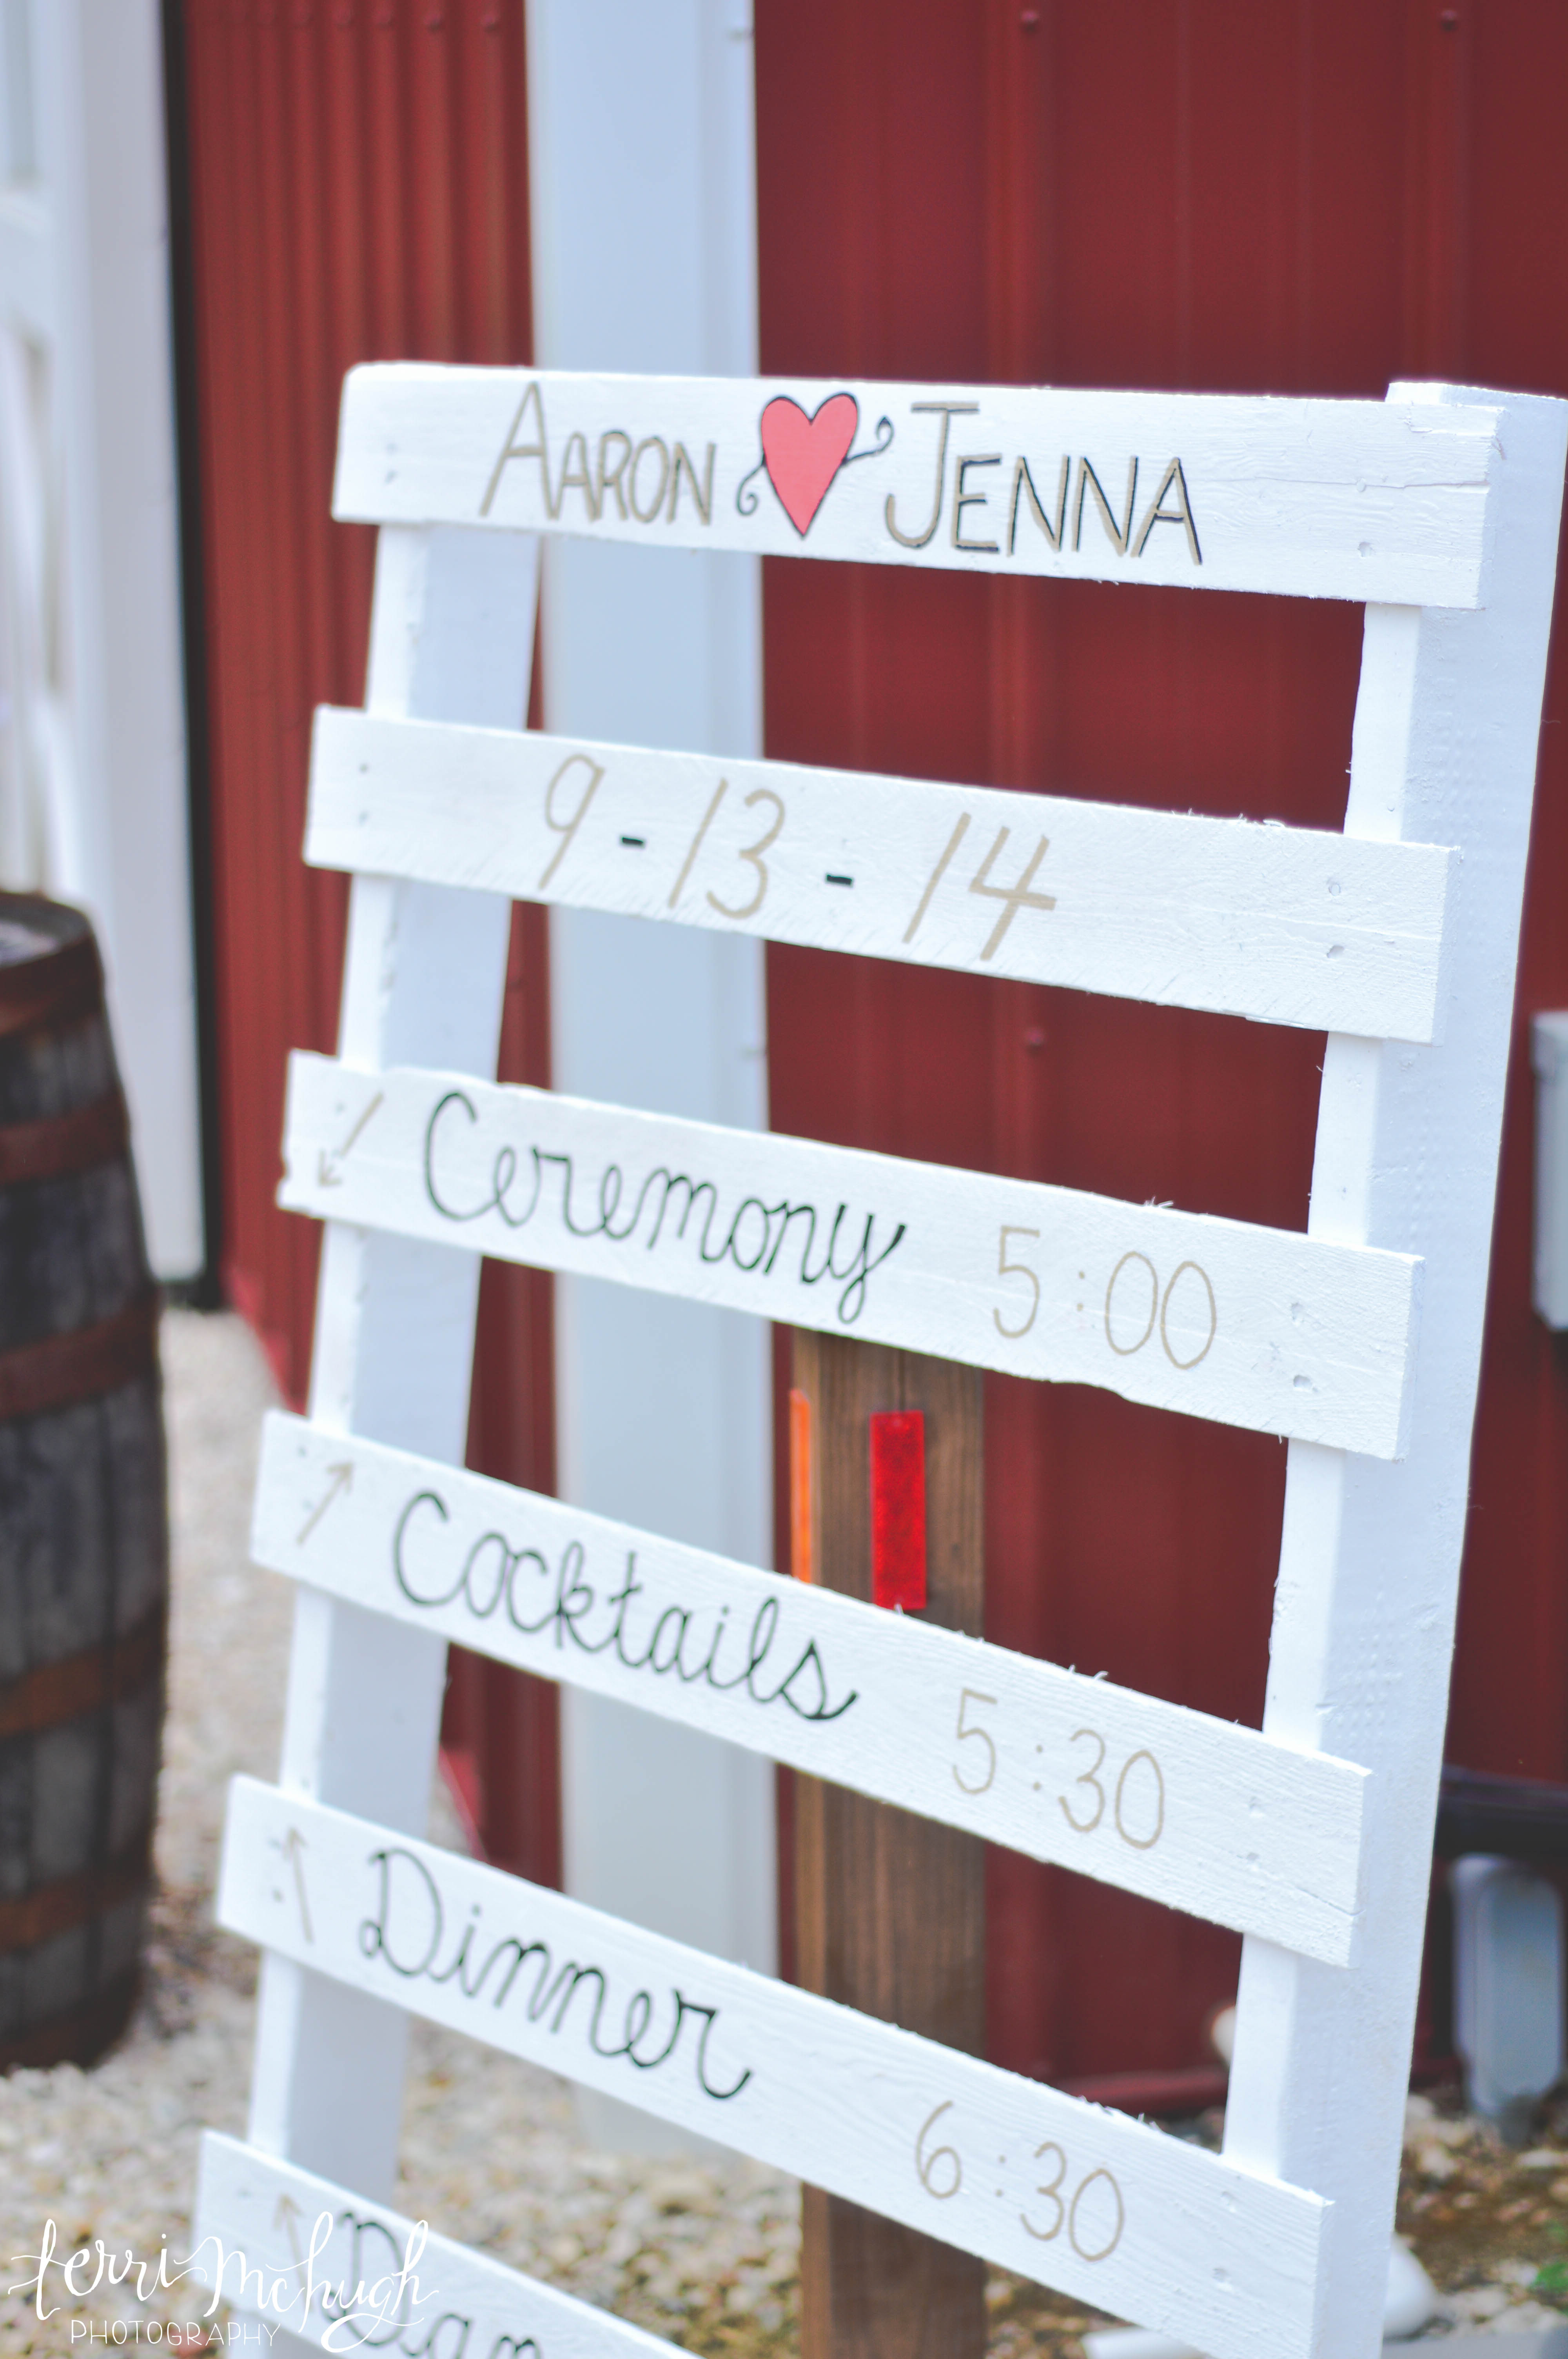 AARON JENNA
9-13-14
Ceremony 5:00
Cocktails 5:30
Dinner 6:30
terri mchugh
PHOTOGRAPHY